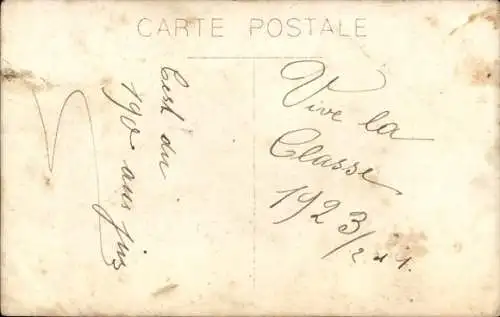 CARTE POSTALE
C'est du
190 aux jus
Vive la
Classe
1923/2 et 1.